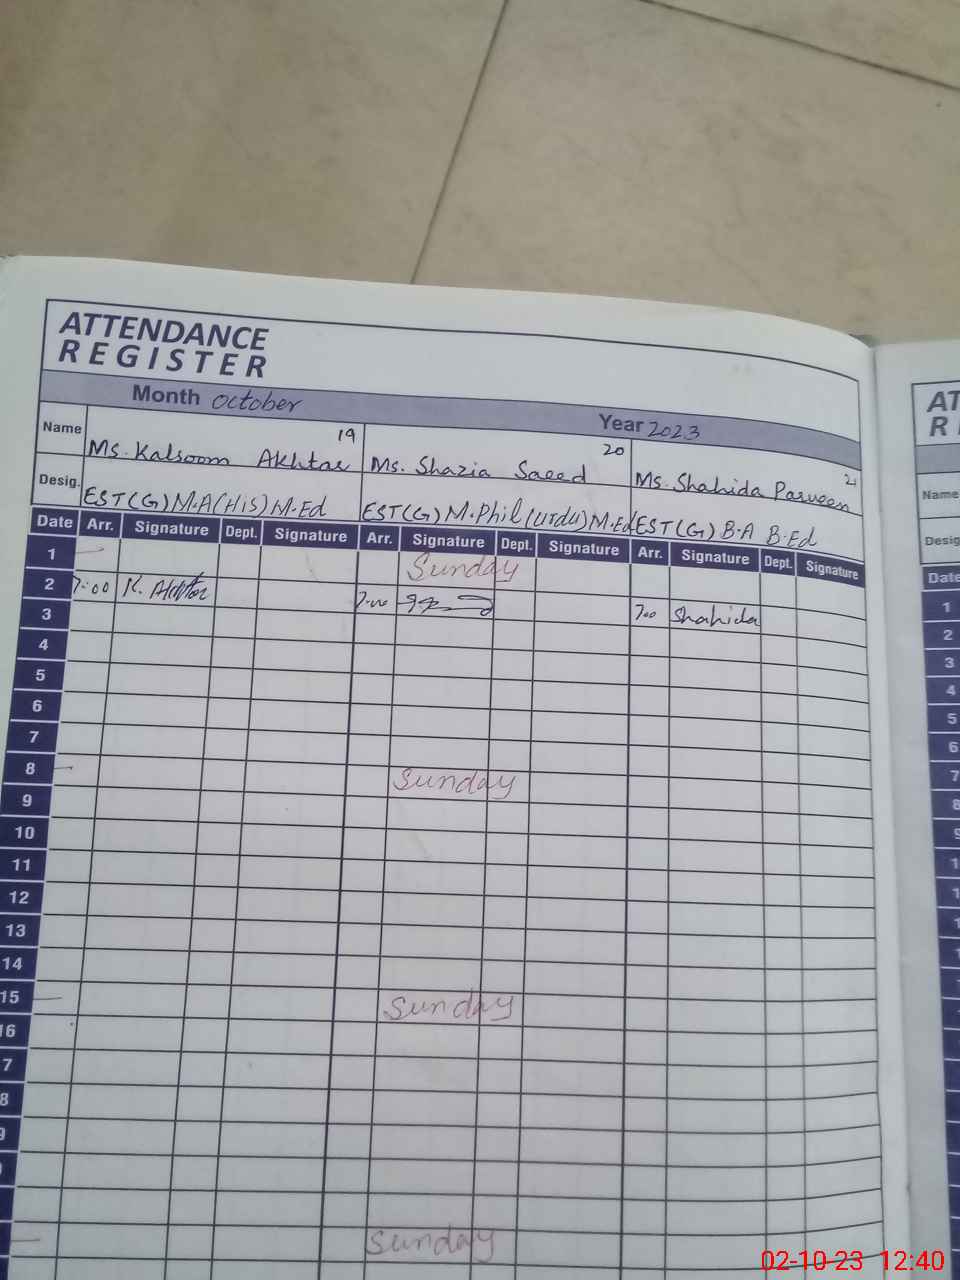 ATTENDANCE
REGISTER
Month October Year 2023
Name 19 20 21
Ms. Kalsoom Akhtar Ms. Shazia Saeed Ms. Shahida Parveen
Desig.
EST(G) M.A(His) M.Ed EST(G) M.Phil (Urdu) M.Ed EST(G) B.A B.Ed
Date Arr. Signature Dept. Signature Arr. Signature Dept. Signature Arr. Signature Dept. Signature
1 Sunday
2 7:00 K. Akhtar 7:00 7:00 Shahida
3
4
5
6
7
8 Sunday
9
10
11
12
13
14
15 Sunday
16
7
8
9
Sunday
AT
Name
Desig
Date
1
2
3
4
5
6
7
8
02-10-23 12:40